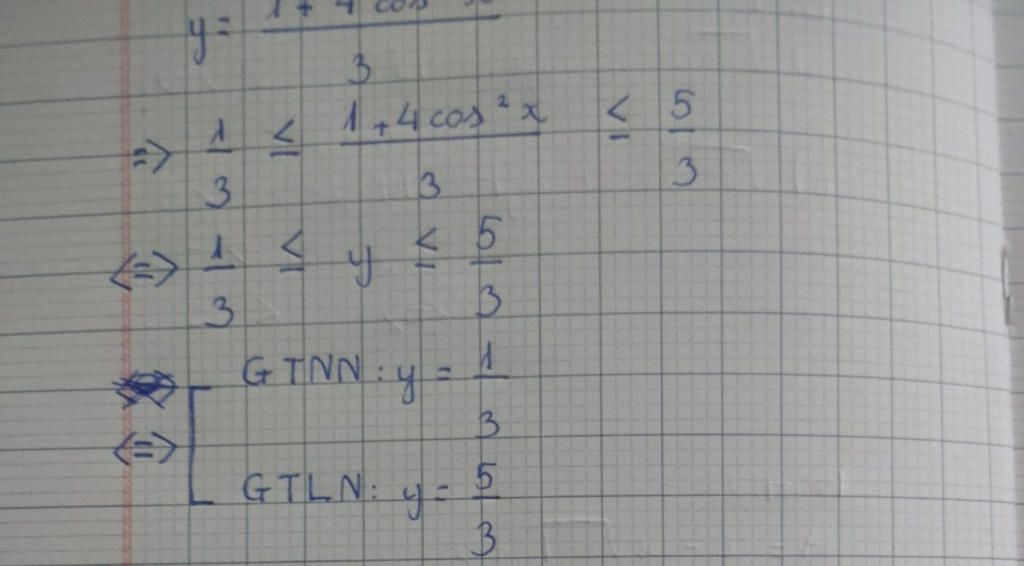 y = (1 + 4 cos²x) / 3
=> 1/3 ≤ (1 + 4 cos²x) / 3 ≤ 5/3
<=> 1/3 ≤ y ≤ 5/3
<=> [ GTNN: y = 1/3
GTLN: y = 5/3